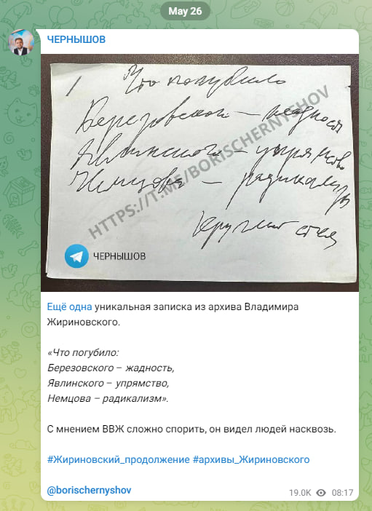 May 26
ЧЕРНЫШОВ
1 Что погубило
Березовского – жадность
Явлинского – упрямство
Немцова – радикализм
HTTPS://T.ME/BORISCHERNYSHOV
ЧЕРНЫШОВ
Ещё одна уникальная записка из архива Владимира
Жириновского.
«Что погубило:
Березовского – жадность,
Явлинского – упрямство,
Немцова – радикализм».
С мнением ВВЖ сложно спорить, он видел людей насквозь.
#Жириновский_продолжение #архивы_Жириновского
@borischernyshov
19.0K 08:17